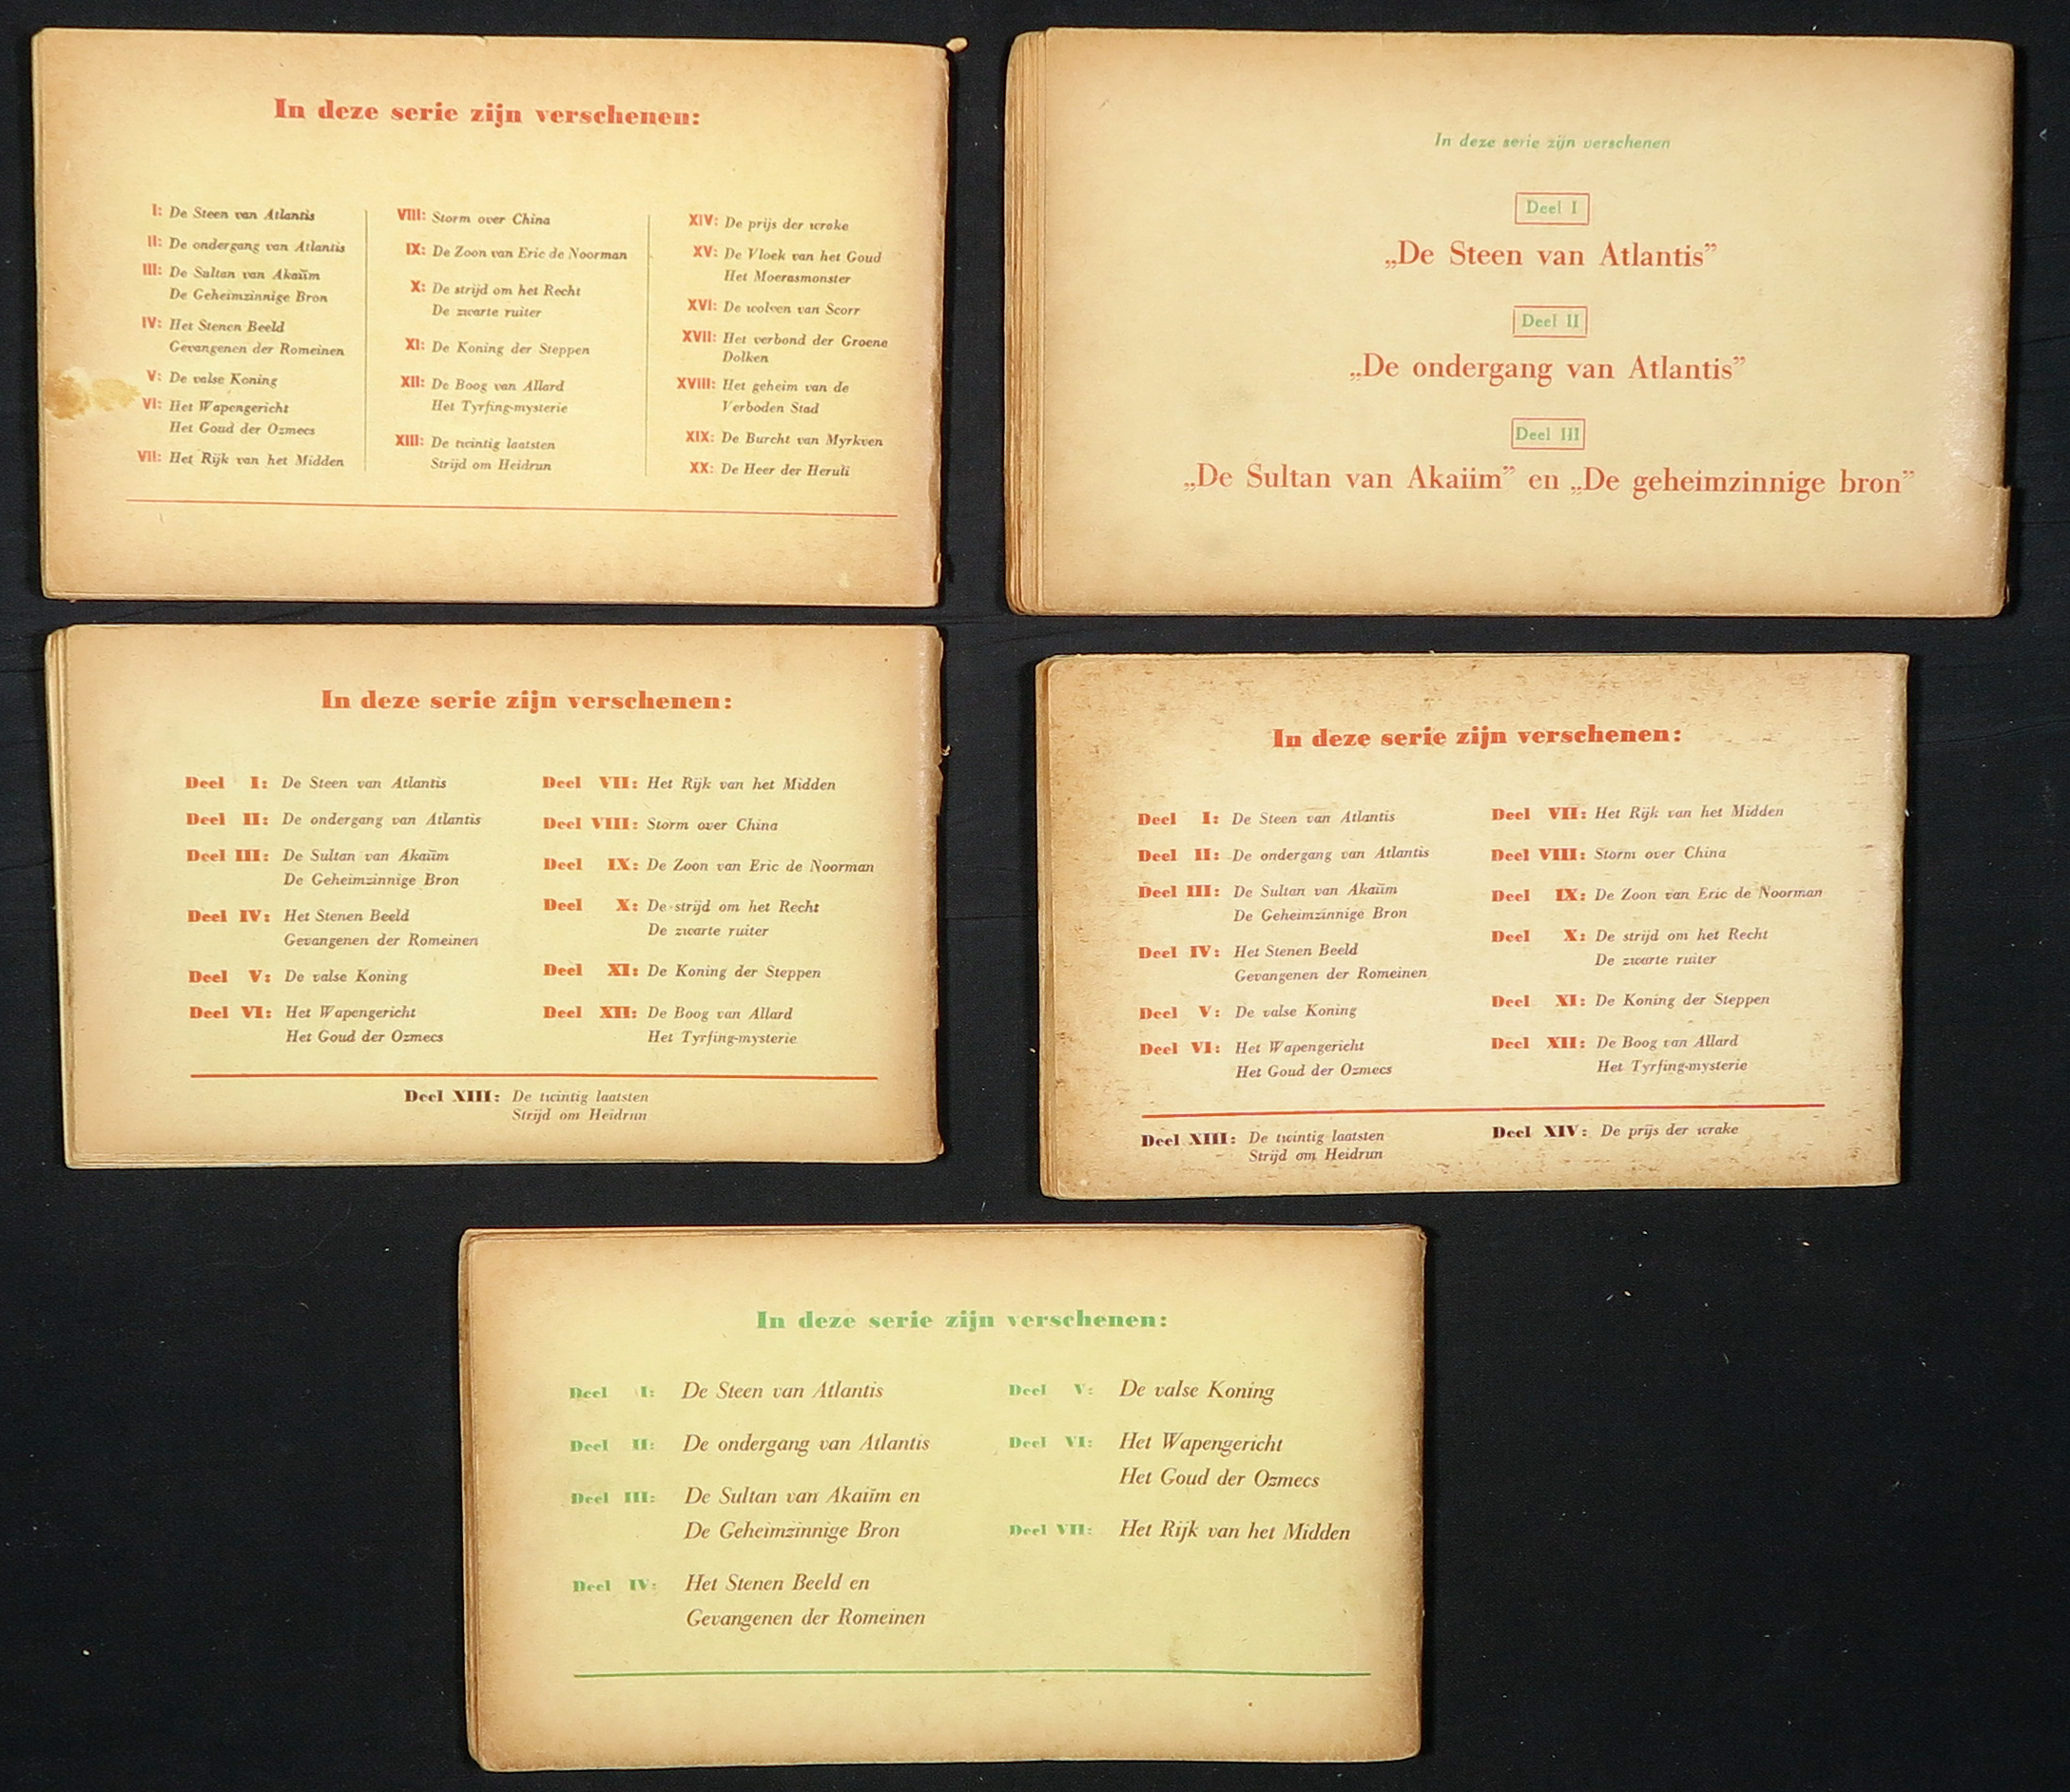 In deze serie zijn verschenen:
I: De Steen van Atlantis
II: De ondergang van Atlantis
III: De Sultan van Akaïim
De Geheimzinnige Bron
IV: Het Stenen Beeld
Gevangenen der Romeinen
V: De valse Koning
VI: Het Wapengericht
Het Goud der Ozmecs
VII: Het Rijk van het Midden
VIII: Storm over China
IX: De Zoon van Eric de Noorman
X: De strijd om het Recht
De zwarte ruiter
XI: De Koning der Steppen
XII: De Boog van Allard
Het Tyrfing-mysterie
XIII: De twintig laatsten
Strijd om Heidrun
XIV: De prijs der wrake
XV: De Vloek van het Goud
Het Moerasmonster
XVI: De wolven van Scorr
XVII: Het verbond der Groene
Dolken
XVIII: Het geheim van de
Verboden Stad
XIX: De Burcht van Myrkven
XX: De Heer der Heruli
In deze serie zijn verschenen
Deel I
„De Steen van Atlantis”
Deel II
„De ondergang van Atlantis”
Deel III
„De Sultan van Akaiim” en „De geheimzinnige bron”
In deze serie zijn verschenen:
Deel I: De Steen van Atlantis
Deel II: De ondergang van Atlantis
Deel III: De Sultan van Akaïim
De Geheimzinnige Bron
Deel IV: Het Stenen Beeld
Gevangenen der Romeinen
Deel V: De valse Koning
Deel VI: Het Wapengericht
Het Goud der Ozmecs
Deel VII: Het Rijk van het Midden
Deel VIII: Storm over China
Deel IX: De Zoon van Eric de Noorman
Deel X: De strijd om het Recht
De zwarte ruiter
Deel XI: De Koning der Steppen
Deel XII: De Boog van Allard
Het Tyrfing-mysterie
Deel XIII: De twintig laatsten
Strijd om Heidrun
In deze serie zijn verschenen:
Deel I: De Steen van Atlantis
Deel II: De ondergang van Atlantis
Deel III: De Sultan van Akaïim
De Geheimzinnige Bron
Deel IV: Het Stenen Beeld
Gevangenen der Romeinen
Deel V: De valse Koning
Deel VI: Het Wapengericht
Het Goud der Ozmecs
Deel VII: Het Rijk van het Midden
Deel VIII: Storm over China
Deel IX: De Zoon van Eric de Noorman
Deel X: De strijd om het Recht
De zwarte ruiter
Deel XI: De Koning der Steppen
Deel XII: De Boog van Allard
Het Tyrfing-mysterie
Deel XIII: De twintig laatsten
Strijd om Heidrun
Deel XIV: De prijs der wrake
In deze serie zijn verschenen:
Deel I: De Steen van Atlantis
Deel II: De ondergang van Atlantis
Deel III: De Sultan van Akaïim en
De Geheimzinnige Bron
Deel IV: Het Stenen Beeld en
Gevangenen der Romeinen
Deel V: De valse Koning
Deel VI: Het Wapengericht
Het Goud der Ozmecs
Deel VII: Het Rijk van het Midden